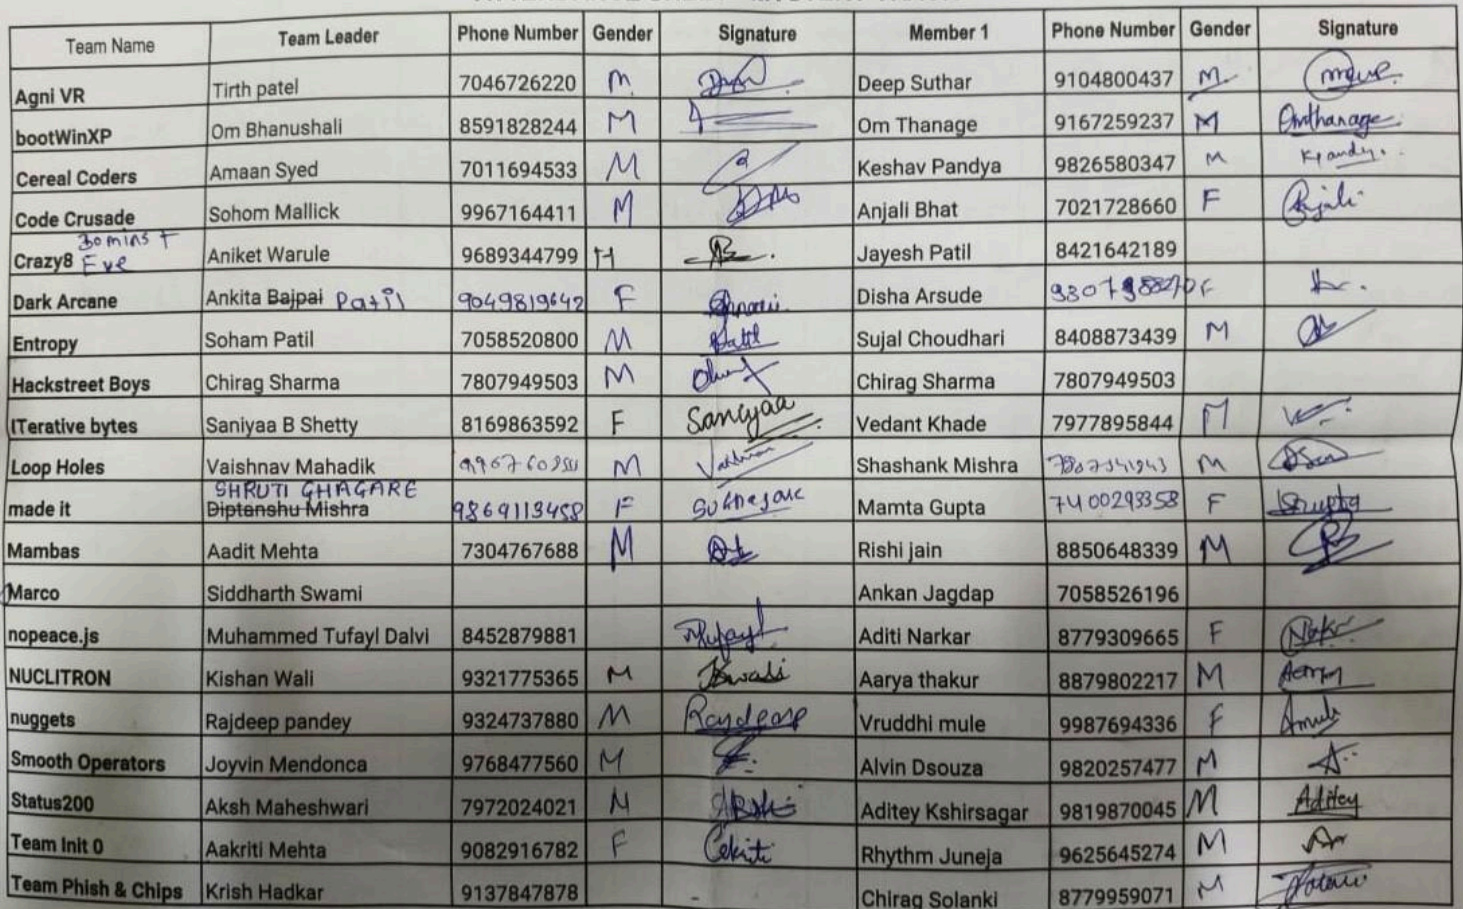 Team Name Team Leader Phone Number Gender Signature Member 1 Phone Number Gender Signature
Agni VR Tirth patel 7046726220 M Deep Suthar 9104800437 M
bootWinXP Om Bhanushali 8591828244 M Om Thanage 9167259237 M Omthanage
Cereal Coders Amaan Syed 7011694533 M Keshav Pandya 9826580347 M Kpandy.
Code Crusade Sohom Mallick 9967164411 M Anjali Bhat 7021728660 F Anjali
Crazy8 30 mins + Eve Aniket Warule 9689344799 M Jayesh Patil 8421642189
Dark Arcane Ankita Bajpai Patil 9049819642 F Disha Arsude F
Entropy Soham Patil 7058520800 M Patil Sujal Choudhari 8408873439 M
Hackstreet Boys Chirag Sharma 7807949503 M Chirag Sharma 7807949503
ITerative bytes Saniyaa B Shetty 8169863592 F Saniyaa Vedant Khade 7977895844 M
Loop Holes Vaishnav Mahadik M Shashank Mishra M
SHRUTI GHAGARE
made it Diptanshu Mishra 9869113458 F Mamta Gupta 7400293358 F
Mambas Aadit Mehta 7304767688 M Rishi jain 8850648339 M
Marco Siddharth Swami Ankan Jagdap 7058526196
nopeace.js Muhammed Tufayl Dalvi 8452879881 Aditi Narkar 8779309665 F
NUCLITRON Kishan Wali 9321775365 M Aarya thakur 8879802217 M
nuggets Rajdeep pandey 9324737880 M Vruddhi mule 9987694336 F Amule
Smooth Operators Joyvin Mendonca 9768477560 M Alvin Dsouza 9820257477 M
Status200 Aksh Maheshwari 7972024021 M Aditey Kshirsagar 9819870045 M Aditey
Team Init 0 Aakriti Mehta 9082916782 F Rhythm Juneja 9625645274 M
Team Phish & Chips Krish Hadkar 9137847878 - Chirag Solanki 8779959071 M